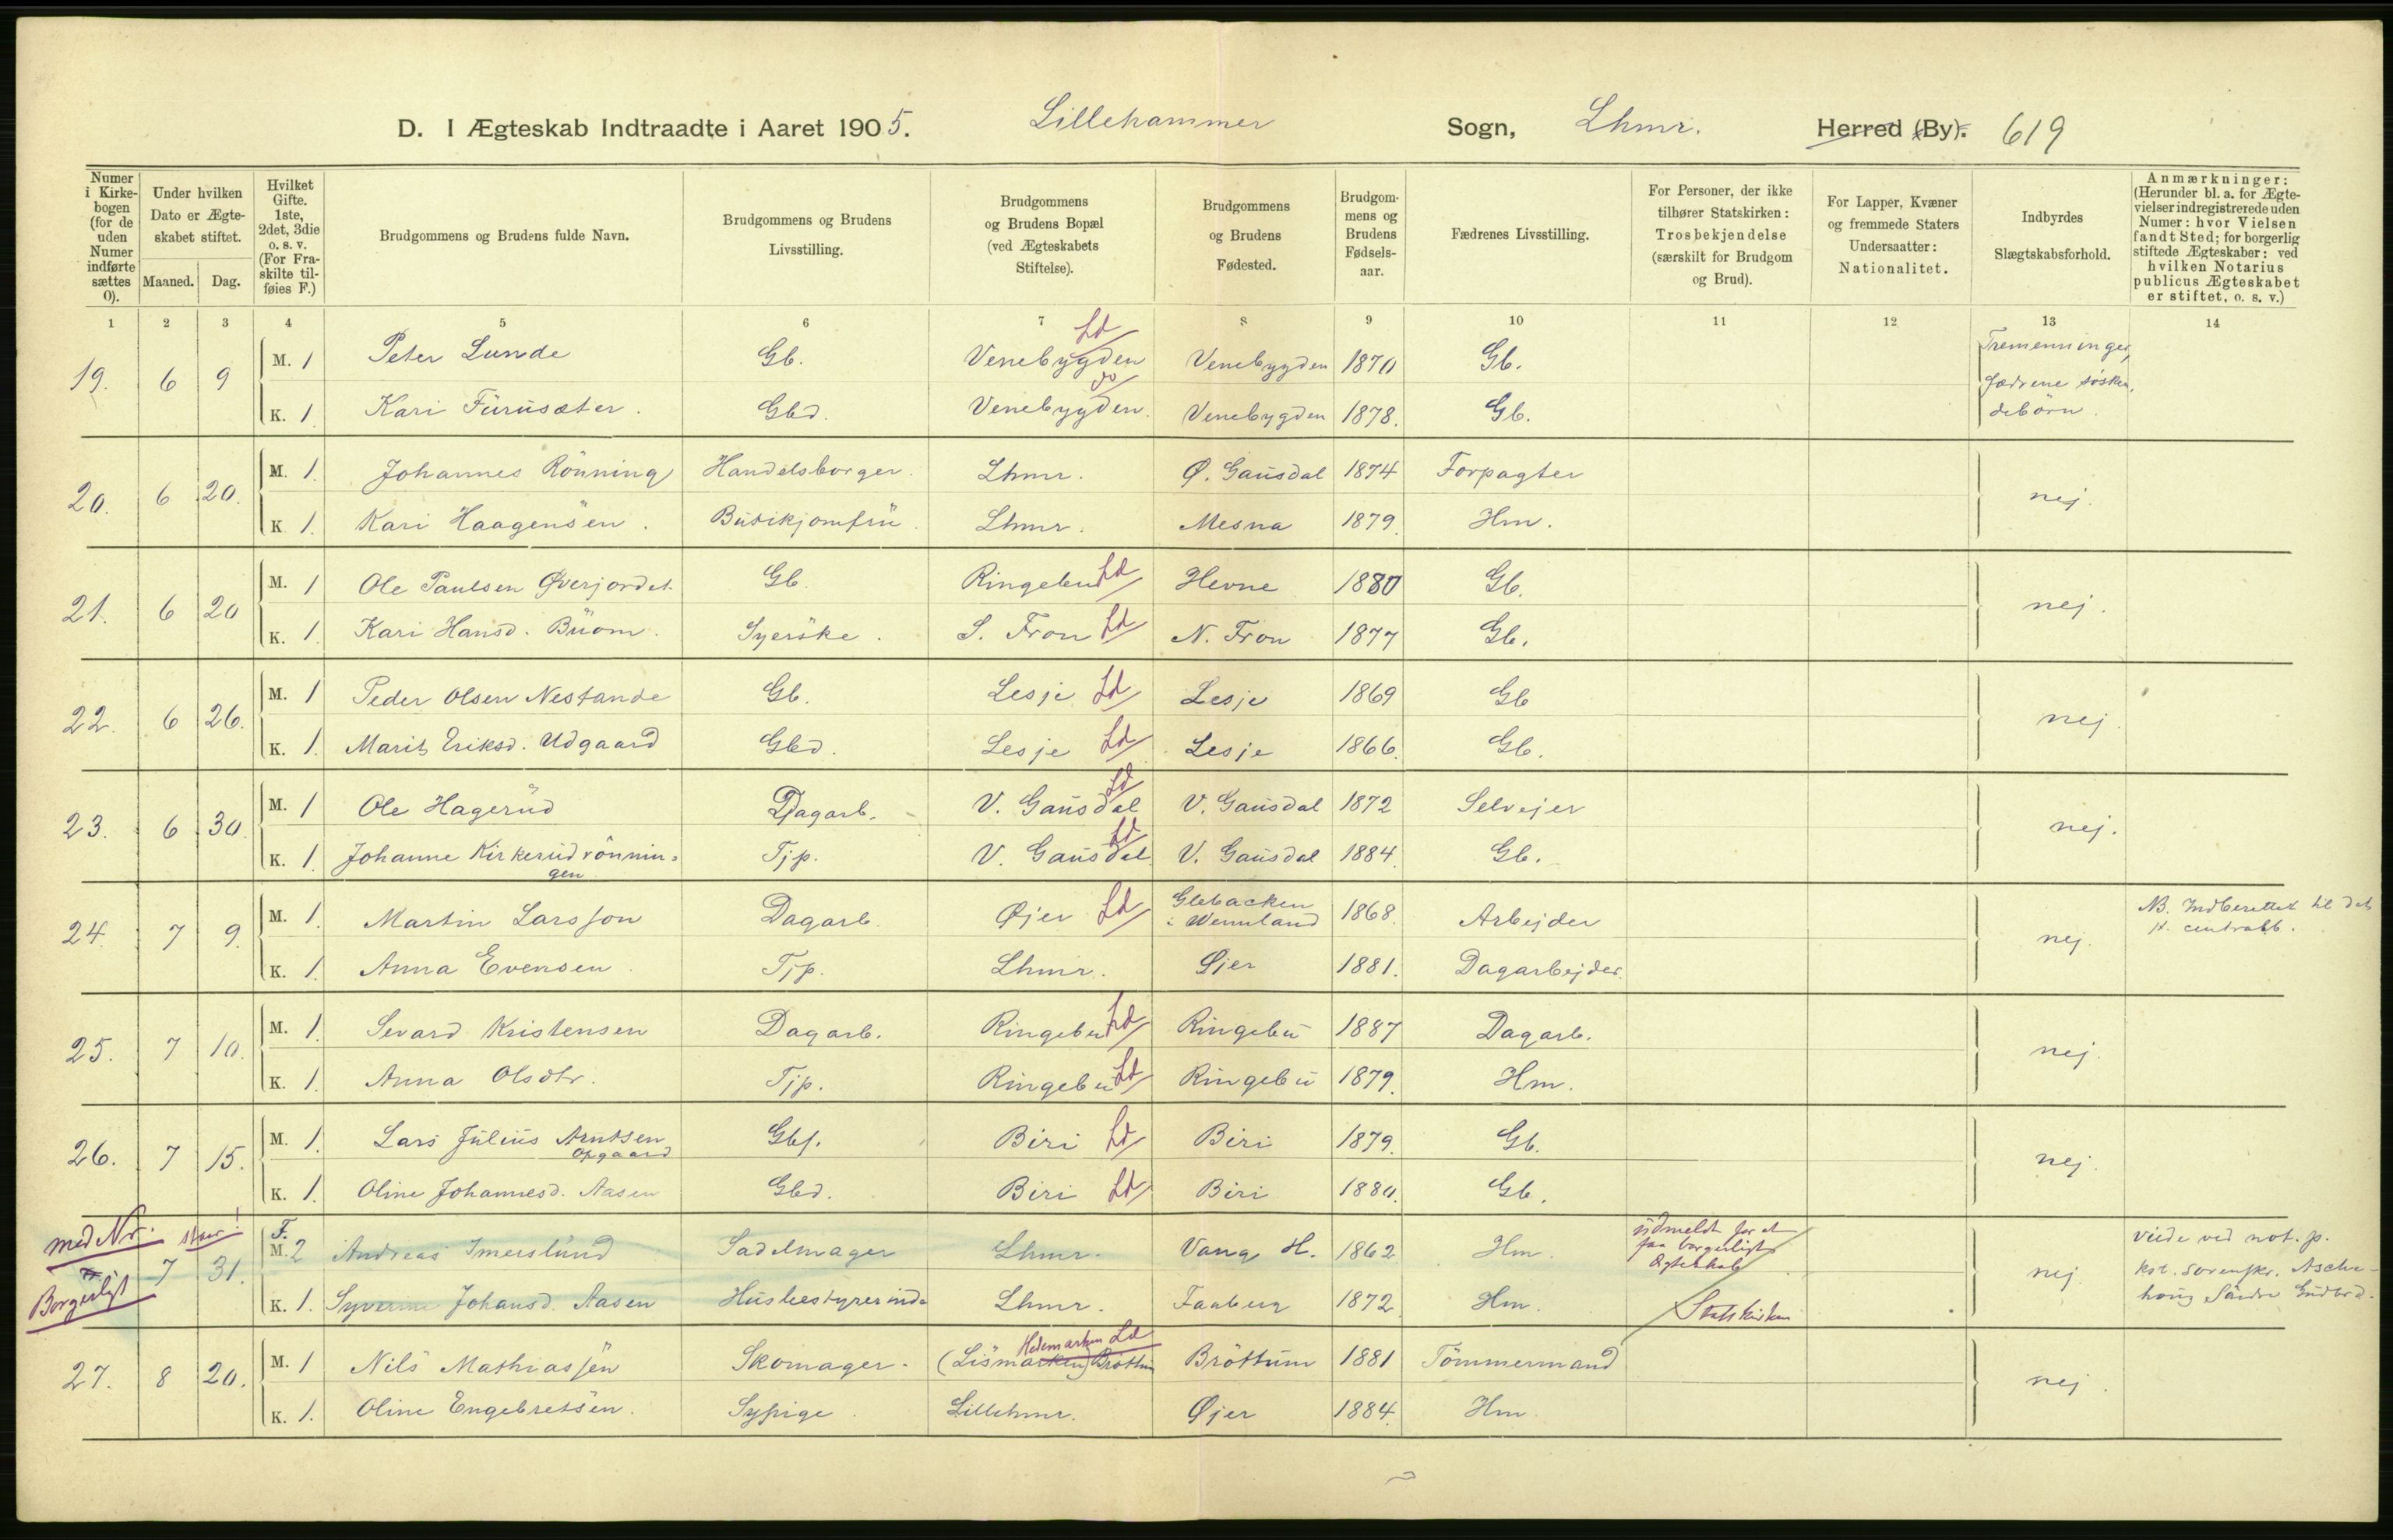 D. I Ægteskab Indtraadte i Aaret 1905. Lillehammer Sogn, Lhmr. Herred (By). 619
Numer i Kirkebogen (for de uden Numer indførte sættes 0).
Under hvilken Dato er Ægteskabet stiftet.
Maaned. Dag.
Hvilket Gifte. 1ste, 2det, 3die o. s. v. (For Fraskilte tilføies F.)
Brudgommens og Brudens fulde Navn.
Brudgommens og Brudens Livsstilling.
Brudgommens og Brudens Bopæl (ved Ægteskabets Stiftelse).
Brudgommens og Brudens Fødested.
Brudgommens og Brudens Fødselsaar.
Fædrenes Livsstilling.
For Personer, der ikke tilhører Statskirken: Trosbekjendelse (særskilt for Brudgom og Brud).
For Lapper, Kvæner og fremmede Staters Undersaatter: Nationalitet.
Indbyrdes Slægtskabsforhold.
Anmærkninger: (Herunder bl. a. for Ægtevielser indregistrerede uden Numer: hvor Vielsen fandt Sted; for borgerlig stiftede Ægteskaber: ved hvilken Notarius publicus Ægteskabet er stiftet, o. s. v.)
1 2 3 4 5 6 7 8 9 10 11 12 13 14
19. 6 9 M. 1 Peter Lunde Gb. Venebygden Ld Venebygden 1870 Gb. Tremenninger, fædrene søskendebörn.
K. 1 Kari Furusæter. Gbd. Venebygden. do Venebygden 1878. Gb.
20. 6 20. M. 1. Johannes Rönning Handelsborger. Lhmr. Ø. Gausdal 1874 Forpagter nej.
K 1. Kari Haagensen. Butikjomfru. Lhmr. Mesna 1879. Hm.
21. 6 20 M. 1 Ole Paulsen Øverjordet. Gb. Ringebu Ld Hevne 1880 Gb. nej.
K. 1. Kari Hansd. Buom. Syerske. S. Fron Ld N. Fron 1877 Gb.
22. 6 26. M. 1 Peder Olsen Nestande Gb. Lesje Ld Lesje 1869 Gb nej.
K. 1. Marit Eriksd. Udgaard Gbd. Lesje Ld Lesje 1866. Gb.
23. 6 30 M. 1 Ole Hagerud Dagarb. V. Gausdal Ld V. Gausdal 1872 Selvejer nej.
K. 1. Johanne Kirkerudrönningen Tjp. V. Gausdal Ld V. Gausdal 1884 Gb.
24. 7 9. M. 1. Martin Larsson Dagarb. Øjer Ld Glebacken i Wermland 1868. Arbejder nej. NB. Indberettet til det st. centralb.
K. 1. Anna Evensen. Tjp. Lhmr. Øjer 1881. Dagarbejder.
25. 7 10. M. 1. Sevard Kristensen Dagarb. Ringebu Ld Ringebu 1887 Dagarb. nej.
K. 1. Anna Olsdtr. Tjp. Ringebu Ld Ringebu 1879. Hm.
26. 7 15. M. 1. Lars Julius Arntsen Opgaard Gbf. Biri Ld Biri 1879. Gb. nej.
K. 1. Oline Johannesd. Aasen Gbd. Biri Ld Biri 1880. Gb.
med Nr. Borgerligt 7 31. F. M. 2 Andreas Imerslund Sadelmager Lhmr. Vang H. 1862 Hm. udmeldt for at faa borgerligt ægteskab nej Viede ved not. p. kst. sorenskr.
K. 1. Syverine Johansd. Aasen Husbestyrerinde Lhmr. Faaberg 1872. Hm. Statskirken
27. 8 20. M. 1 Nils Mathiassen Skomager. (Lismarken) Brøttum Hedemarken Ld Bröttum 1881 Tömmermand nej.
K. 1. Oline Engebretsen. Sypige. Lillehmr. Øjer 1884. Hm.